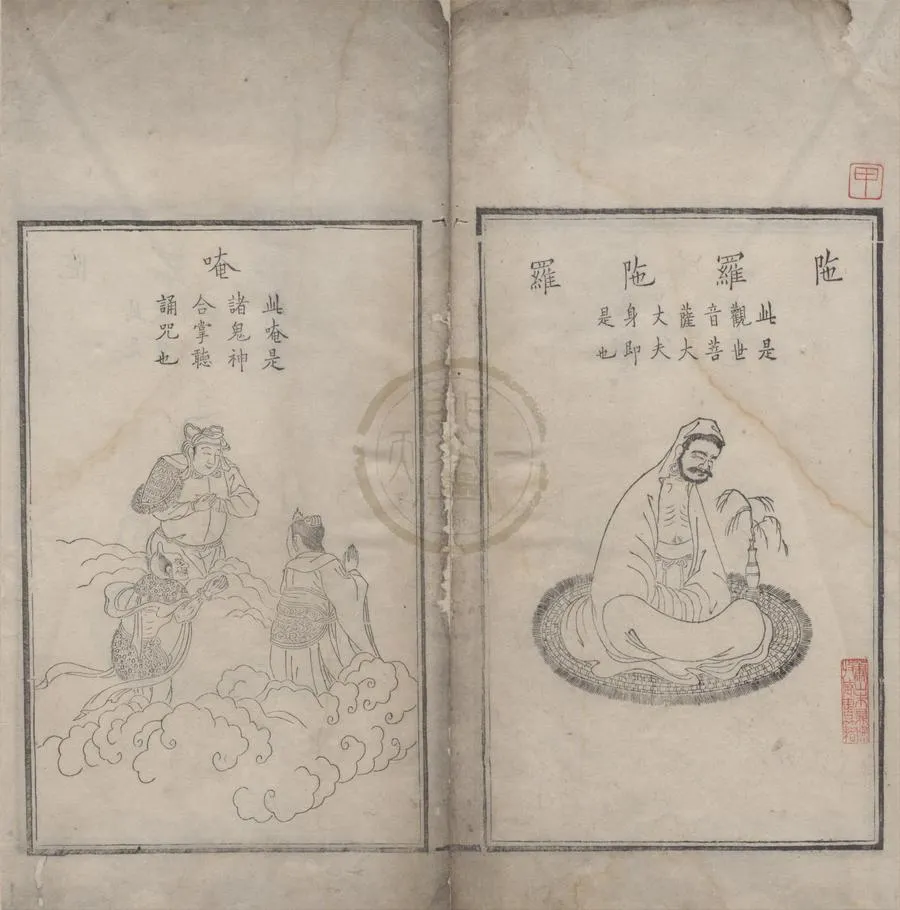 陁羅陁羅
此是
觀世
音菩
薩大
丈夫
身即
是也
唵
此唵是
諸鬼神
合掌聽
誦咒也
甲